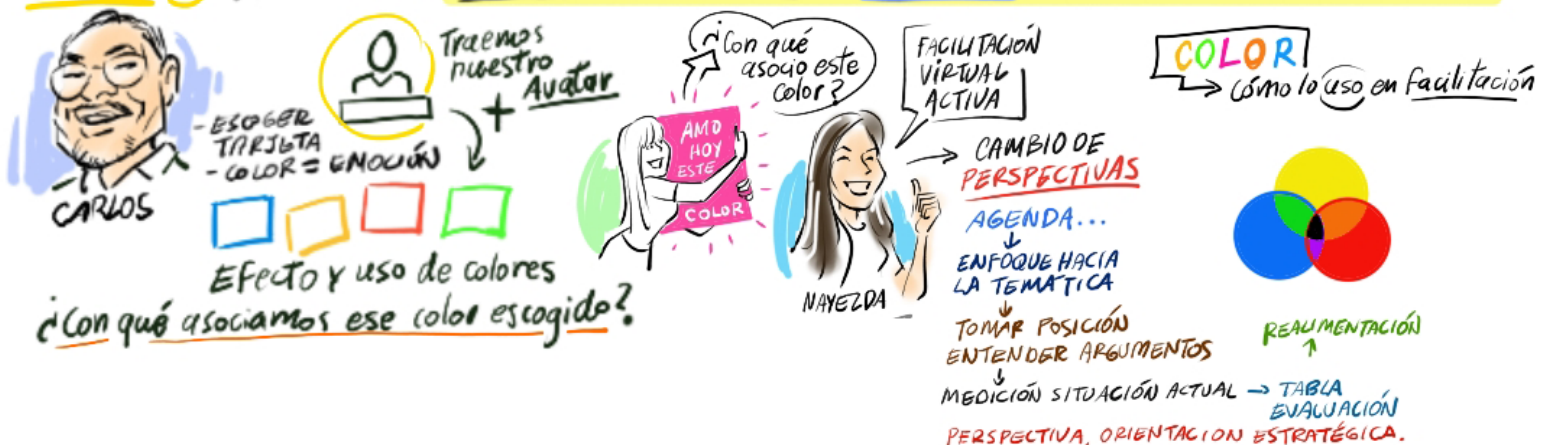 Traemos
nuestro
Avatar
+
- ESCOGER
TARJETA
- COLOR = EMOCIÓN
CARLOS
Efecto y uso de colores
¿Con qué asociamos ese color escogido?
¿Con qué
asocio este
color?
AMO
HOY
ESTE
COLOR
NAYEZDA
FACILITACIÓN
VIRTUAL
ACTIVA
→ CAMBIO DE
PERSPECTIVAS
AGENDA...
ENFOQUE HACIA
LA TEMÁTICA
TOMAR POSICIÓN
ENTENDER ARGUMENTOS
MEDICIÓN SITUACIÓN ACTUAL → TABLA
EVALUACIÓN
PERSPECTIVA, ORIENTACIÓN ESTRATÉGICA.
COLOR
cómo lo uso en facilitación
REALIMENTACIÓN